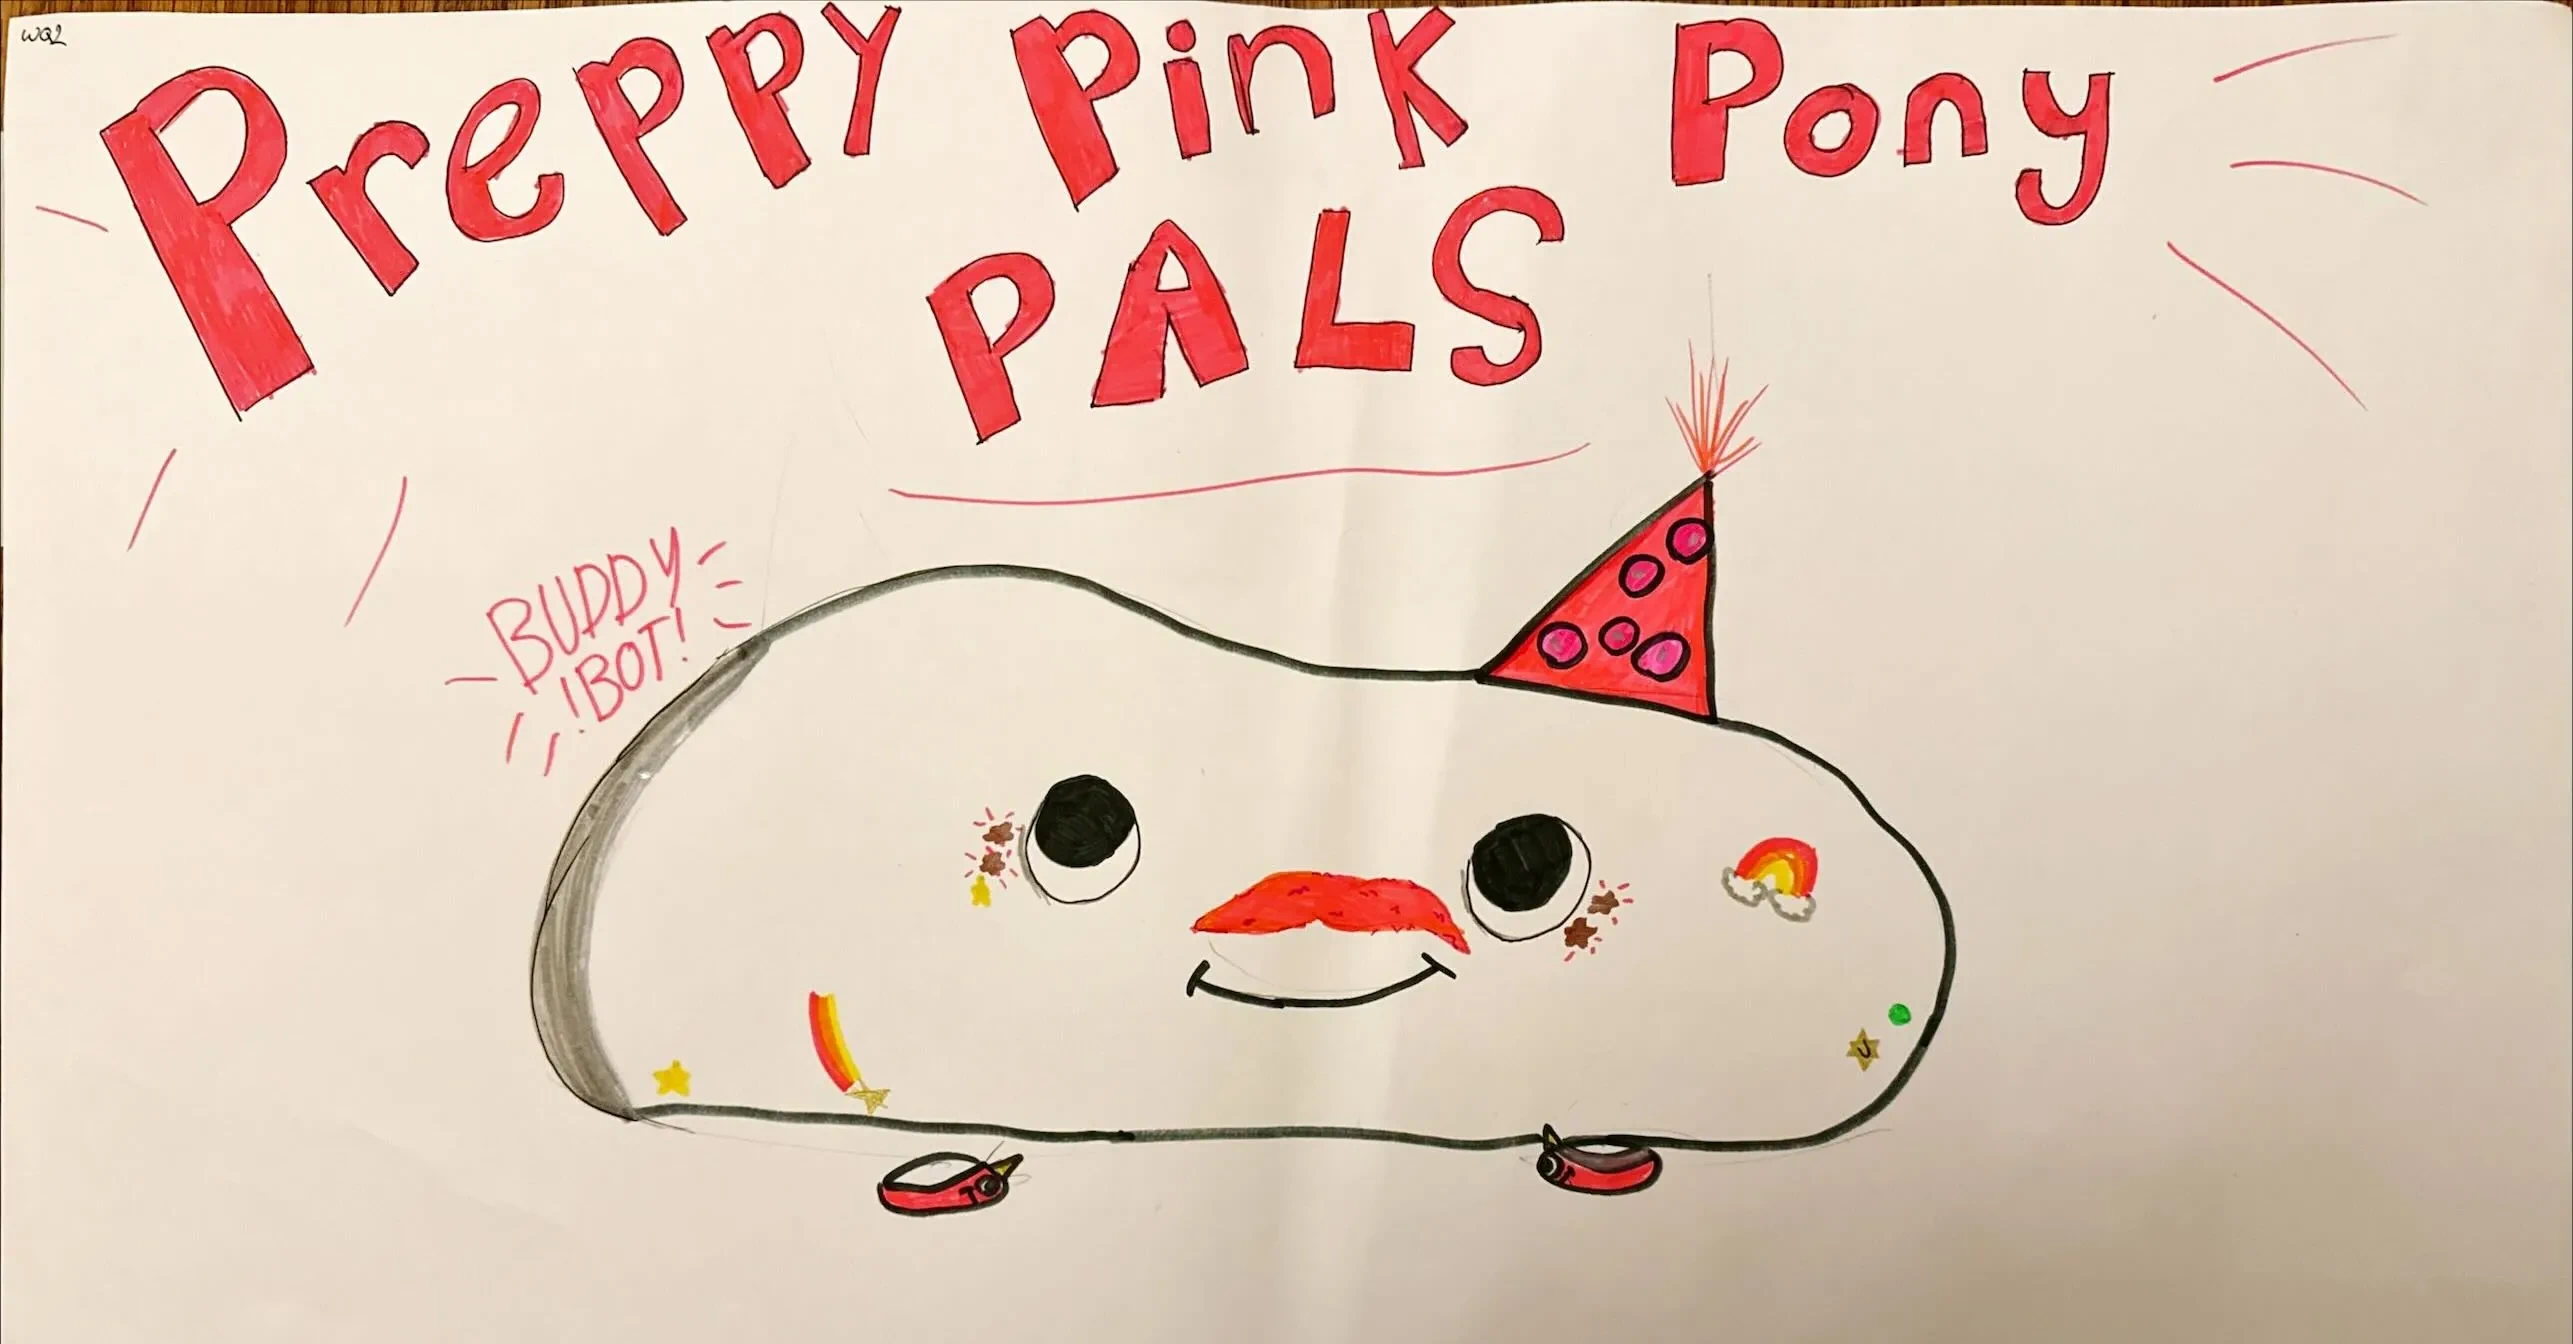 WQ2
Preppy Pink Pony
PALS
BUDDY
!BOT!